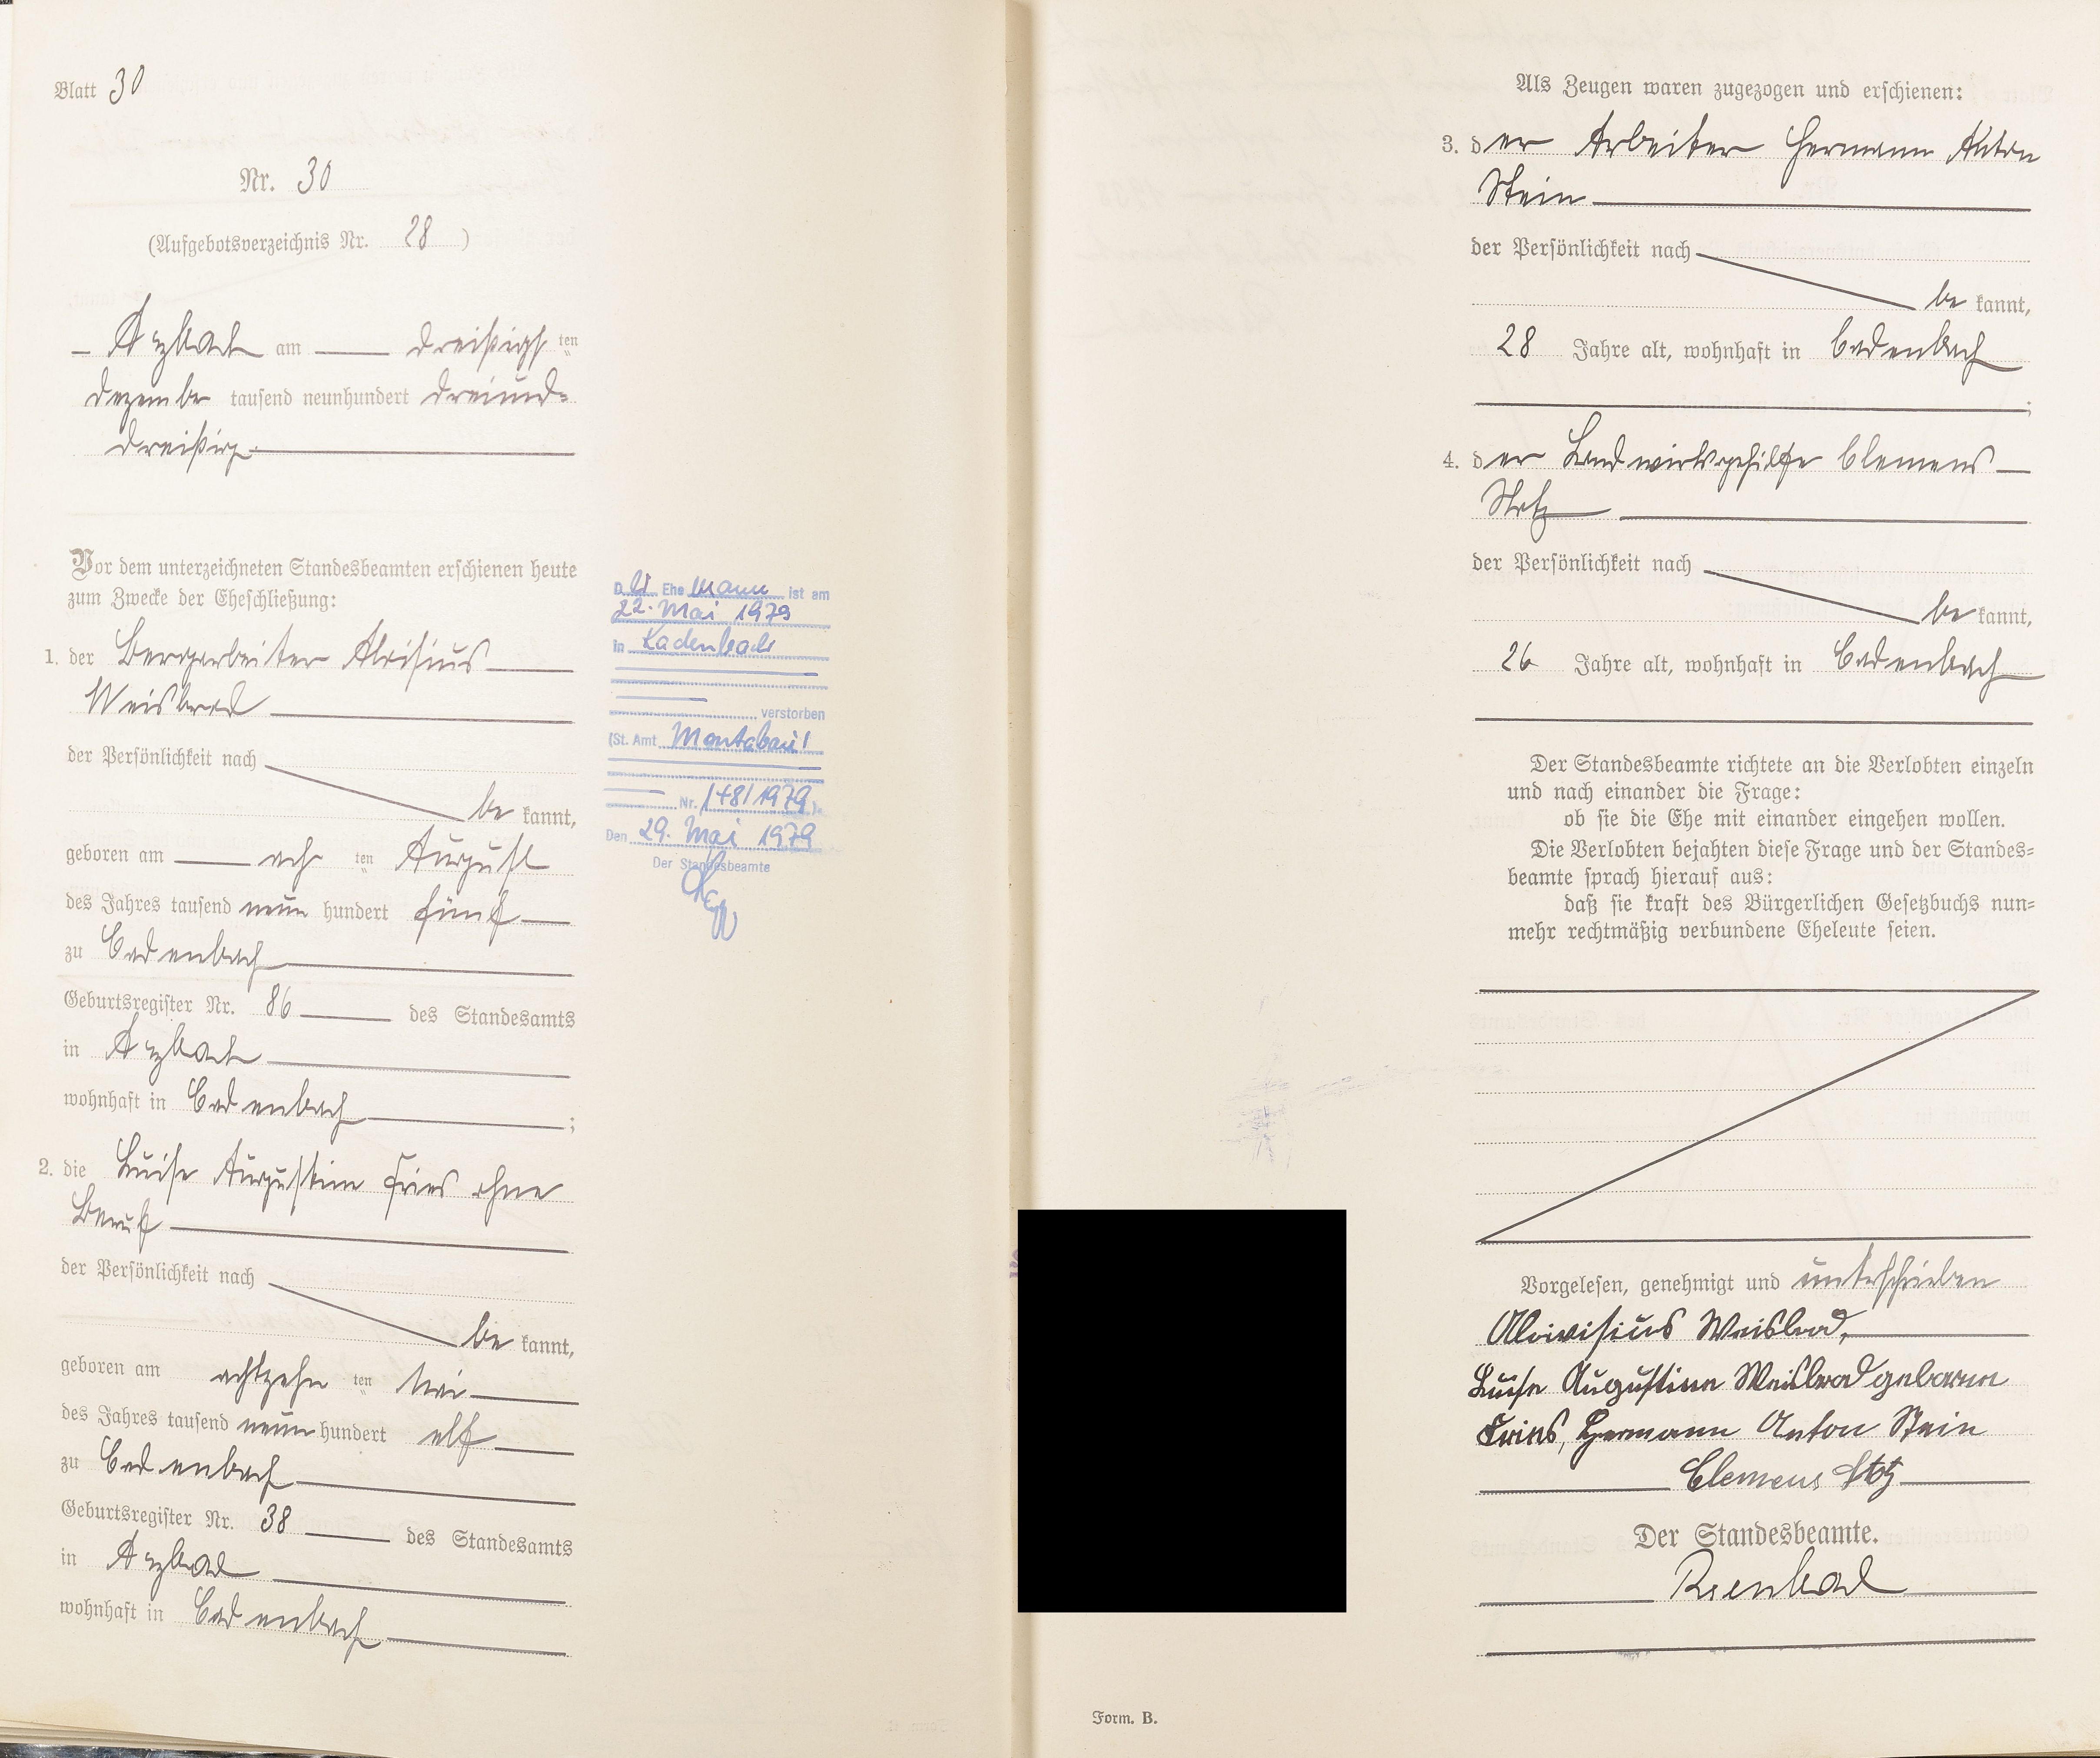 Blatt 30
Nr. 30
(Aufgebotsverzeichnis Nr. 28 )
Arzbach am dreißigsten
Dezember tausend neunhundert dreiund=
dreißig
Vor dem unterzeichneten Standesbeamten erschienen heute
zum Zwecke der Eheschließung:
1. der Bergarbeiter Aloisius
Weisbrod
der Persönlichkeit nach
be kannt,
geboren am acht ten August
des Jahres tausend neun hundert fünf
zu Cadenbach
Geburtsregister Nr. 86 des Standesamts
in Arzbach
wohnhaft in Cadenbach ;
2. die Luise Augustine Fries ohne
Beruf
der Persönlichkeit nach
be kannt,
geboren am achtzehn ten Mai
des Jahres tausend neun hundert elf
zu Cadenbach
Geburtsregister Nr. 38 des Standesamts
in Arzbach
wohnhaft in Cadenbach
Der Ehemann ist am
22. Mai 1979
in Kadenbach
verstorben
(St. Amt Montabaur
Nr. 148/1979).
Den 29. Mai 1979
Der Standesbeamte
Als Zeugen waren zugezogen und erschienen:
3. der Arbeiter Hermann Anton
Stein
der Persönlichkeit nach
be kannt,
28 Jahre alt, wohnhaft in Cadenbach
;
4. der Landwirtsgehilfe Clemens
Stotz
der Persönlichkeit nach
be kannt,
26 Jahre alt, wohnhaft in Cadenbach
Der Standesbeamte richtete an die Verlobten einzeln
und nach einander die Frage:
ob sie die Ehe mit einander eingehen wollen.
Die Verlobten bejahten diese Frage und der Standes=
beamte sprach hierauf aus:
daß sie kraft des Bürgerlichen Gesetzbuchs nun=
mehr rechtmäßig verbundene Eheleute seien.
Vorgelesen, genehmigt und unterschrieben
Aloisius Weisbrod,
Luise Augustine Weisbrod geborene
Fries, Hermann Anton Stein
Clemens Stotz
Der Standesbeamte.
Form. B.